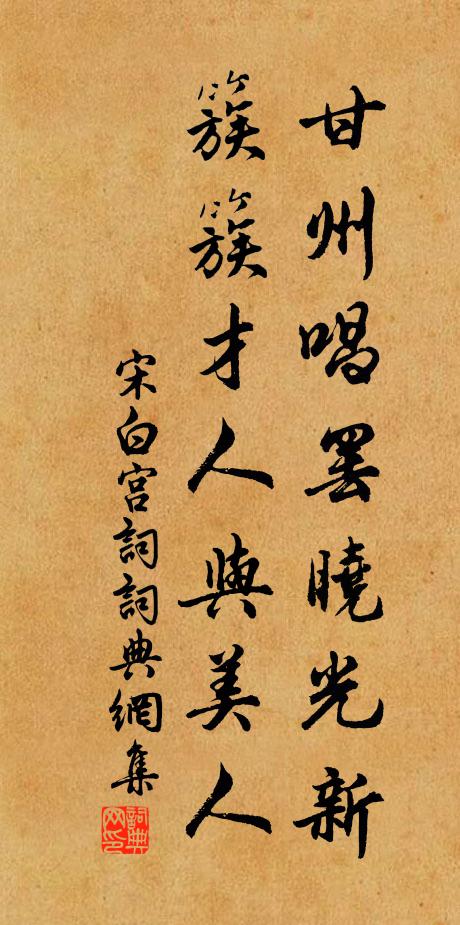 甘州唱罷曉光新
簇簇才人與美人
宋白宮詞詞典網集
詞典网印